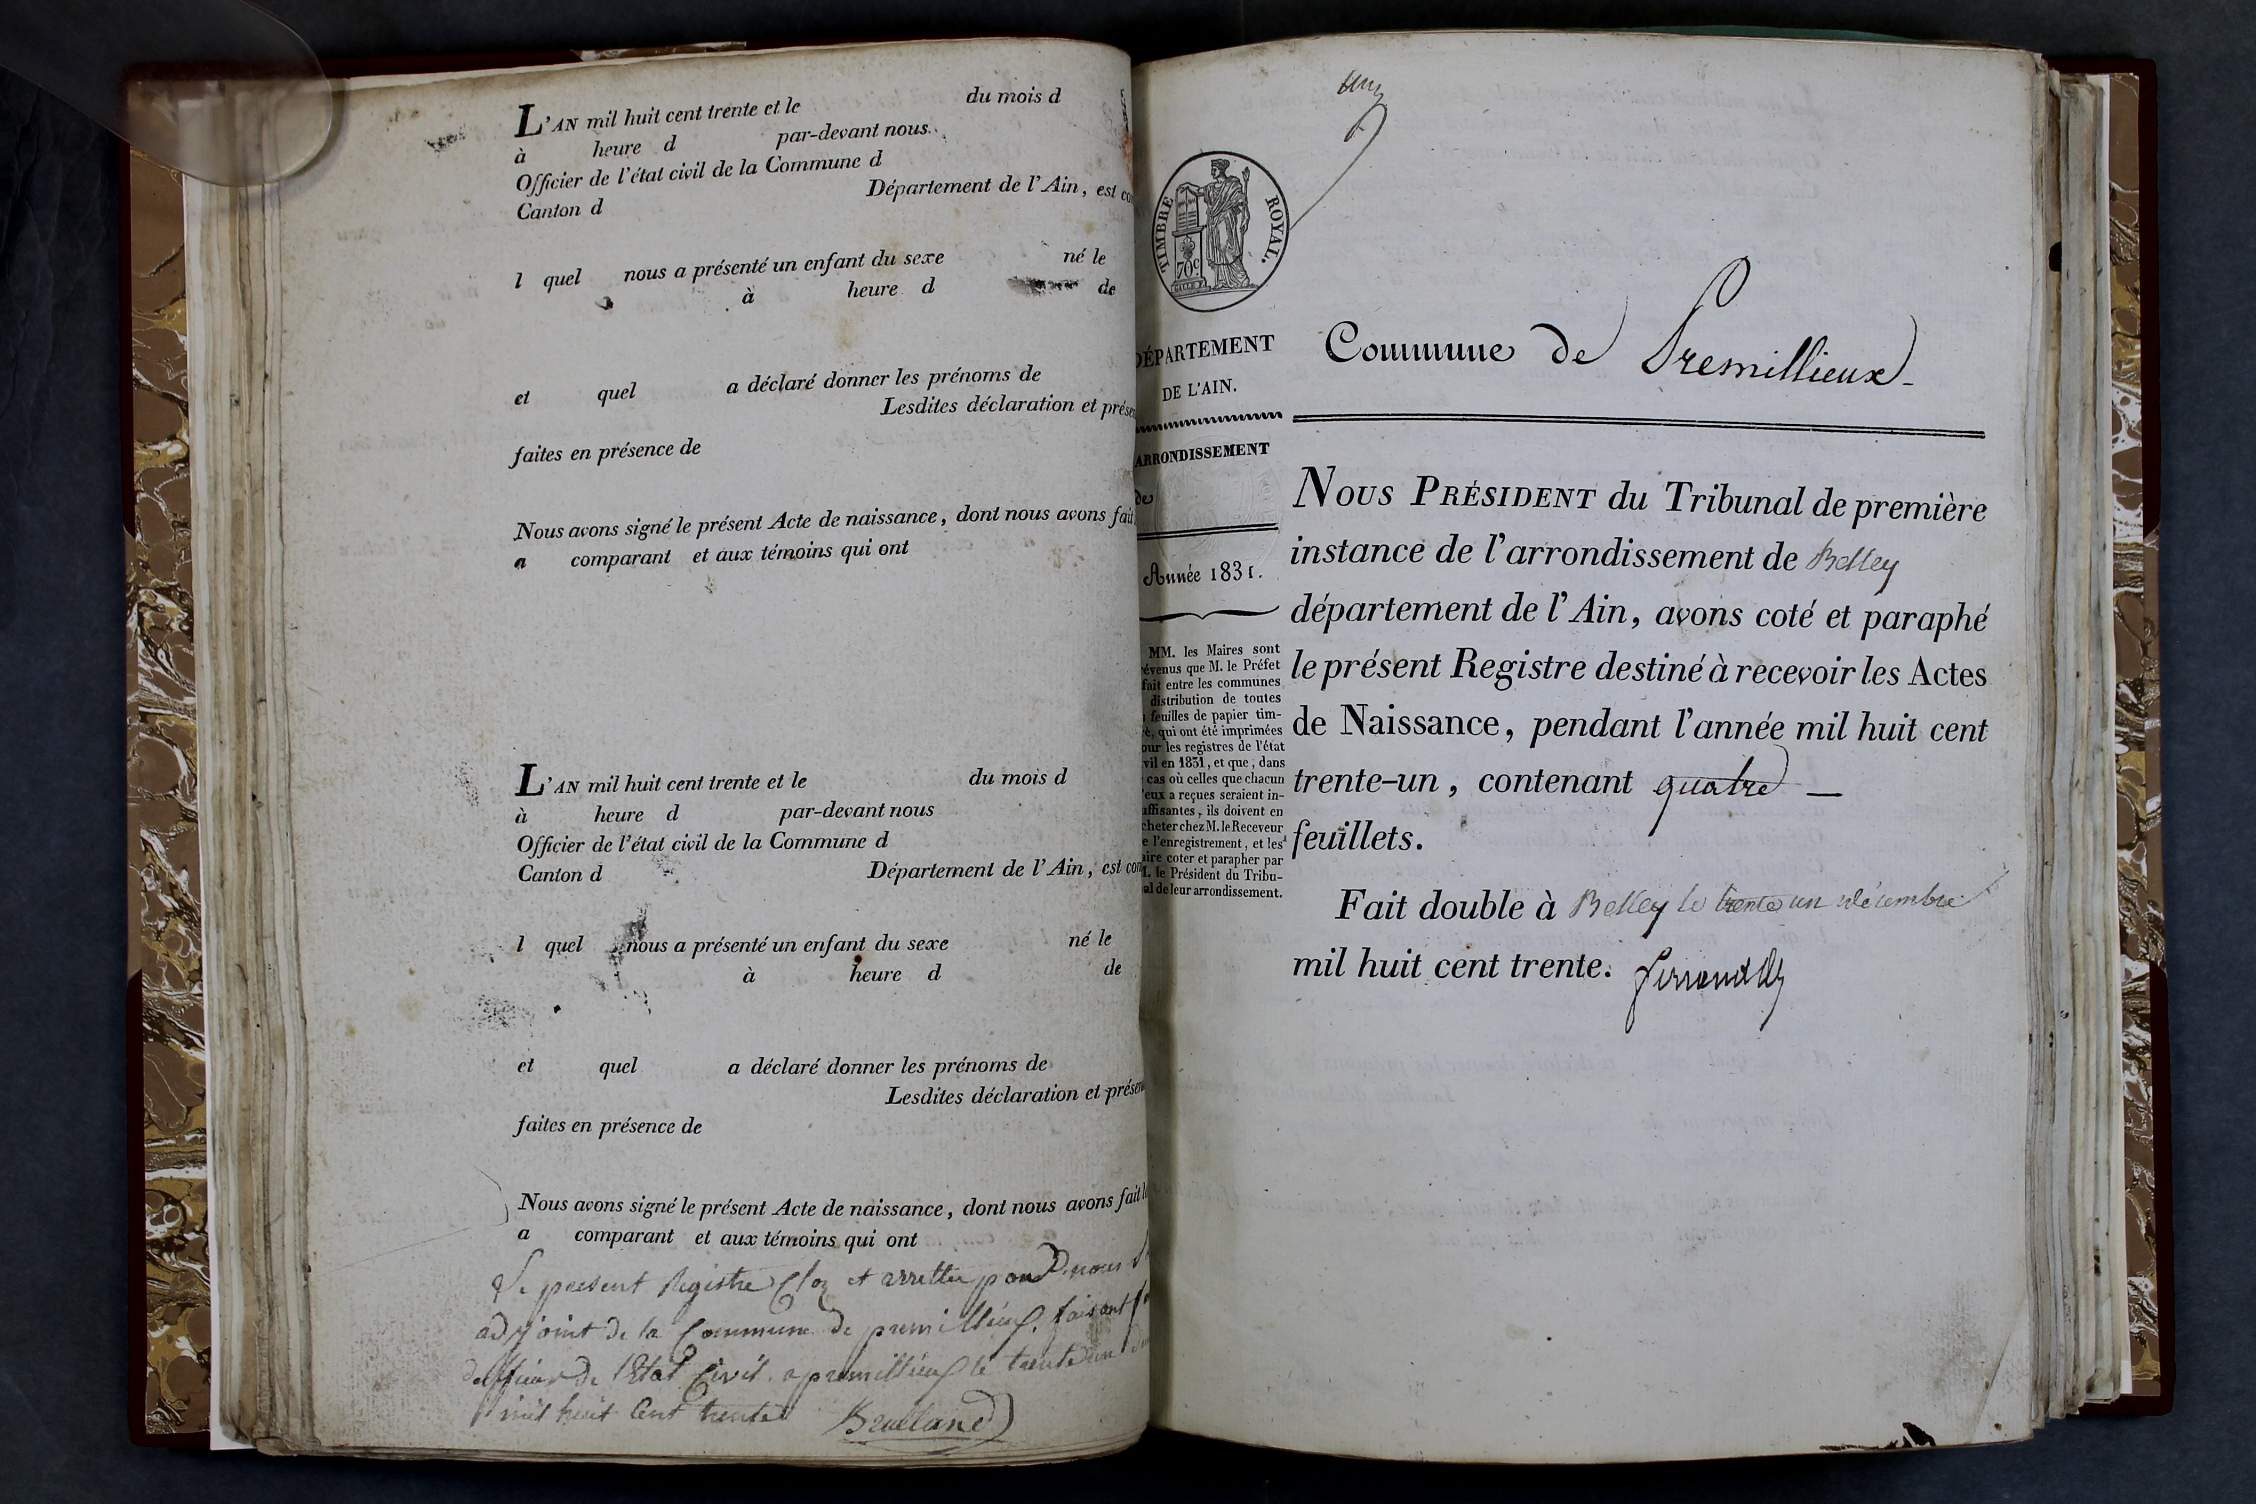 L'AN mil huit cent trente et le du mois d
à heure d par-devant nous
Officier de l'état civil de la Commune d
Canton d Département de l'Ain, est
l quel nous a présenté un enfant du sexe né le
à heure d de
et quel a déclaré donner les prénoms de
Lesdites déclaration et
faites en présence de
Nous avons signé le présent Acte de naissance, dont nous avons fait
a comparant et aux témoins qui ont
L'AN mil huit cent trente et le du mois d
à heure d par-devant nous
Officier de l'état civil de la Commune d
Canton d Département de l'Ain, est
l quel nous a présenté un enfant du sexe né le
à heure d de
et quel a déclaré donner les prénoms de
Lesdites déclaration et
faites en présence de
Nous avons signé le présent Acte de naissance, dont nous avons fait
a comparant et aux témoins qui ont
present Registre Cloz et arretter nous
adjoint de la Commune de premillieux faisant
de l'Etat Civil a premillieux le trente un
mil huit Cent trente
TIMBRE ROYAL.
70c
DÉPARTEMENT
DE L'AIN.
ARRONDISSEMENT
de
Année 1831.
MM. les Maires sont
que M. le Préfet
fait entre les communes
distribution de toutes
feuilles de papier tim-
qui ont été imprimées
les registres de l'état
en 1831, et que, dans
cas où celles que chacun
a reçues seraient in-
ils doivent en
chez M. le Receveur
l'enregistrement, et les
coter et parapher par
le Président du Tribu-
de leur arrondissement.
Commune de Premillieux
NOUS PRÉSIDENT du Tribunal de première
instance de l'arrondissement de Belley
département de l'Ain, avons coté et paraphé
le présent Registre destiné à recevoir les Actes
de Naissance, pendant l'année mil huit cent
trente-un, contenant quatre
feuillets.
Fait double à Belley le trente un décembre
mil huit cent trente.